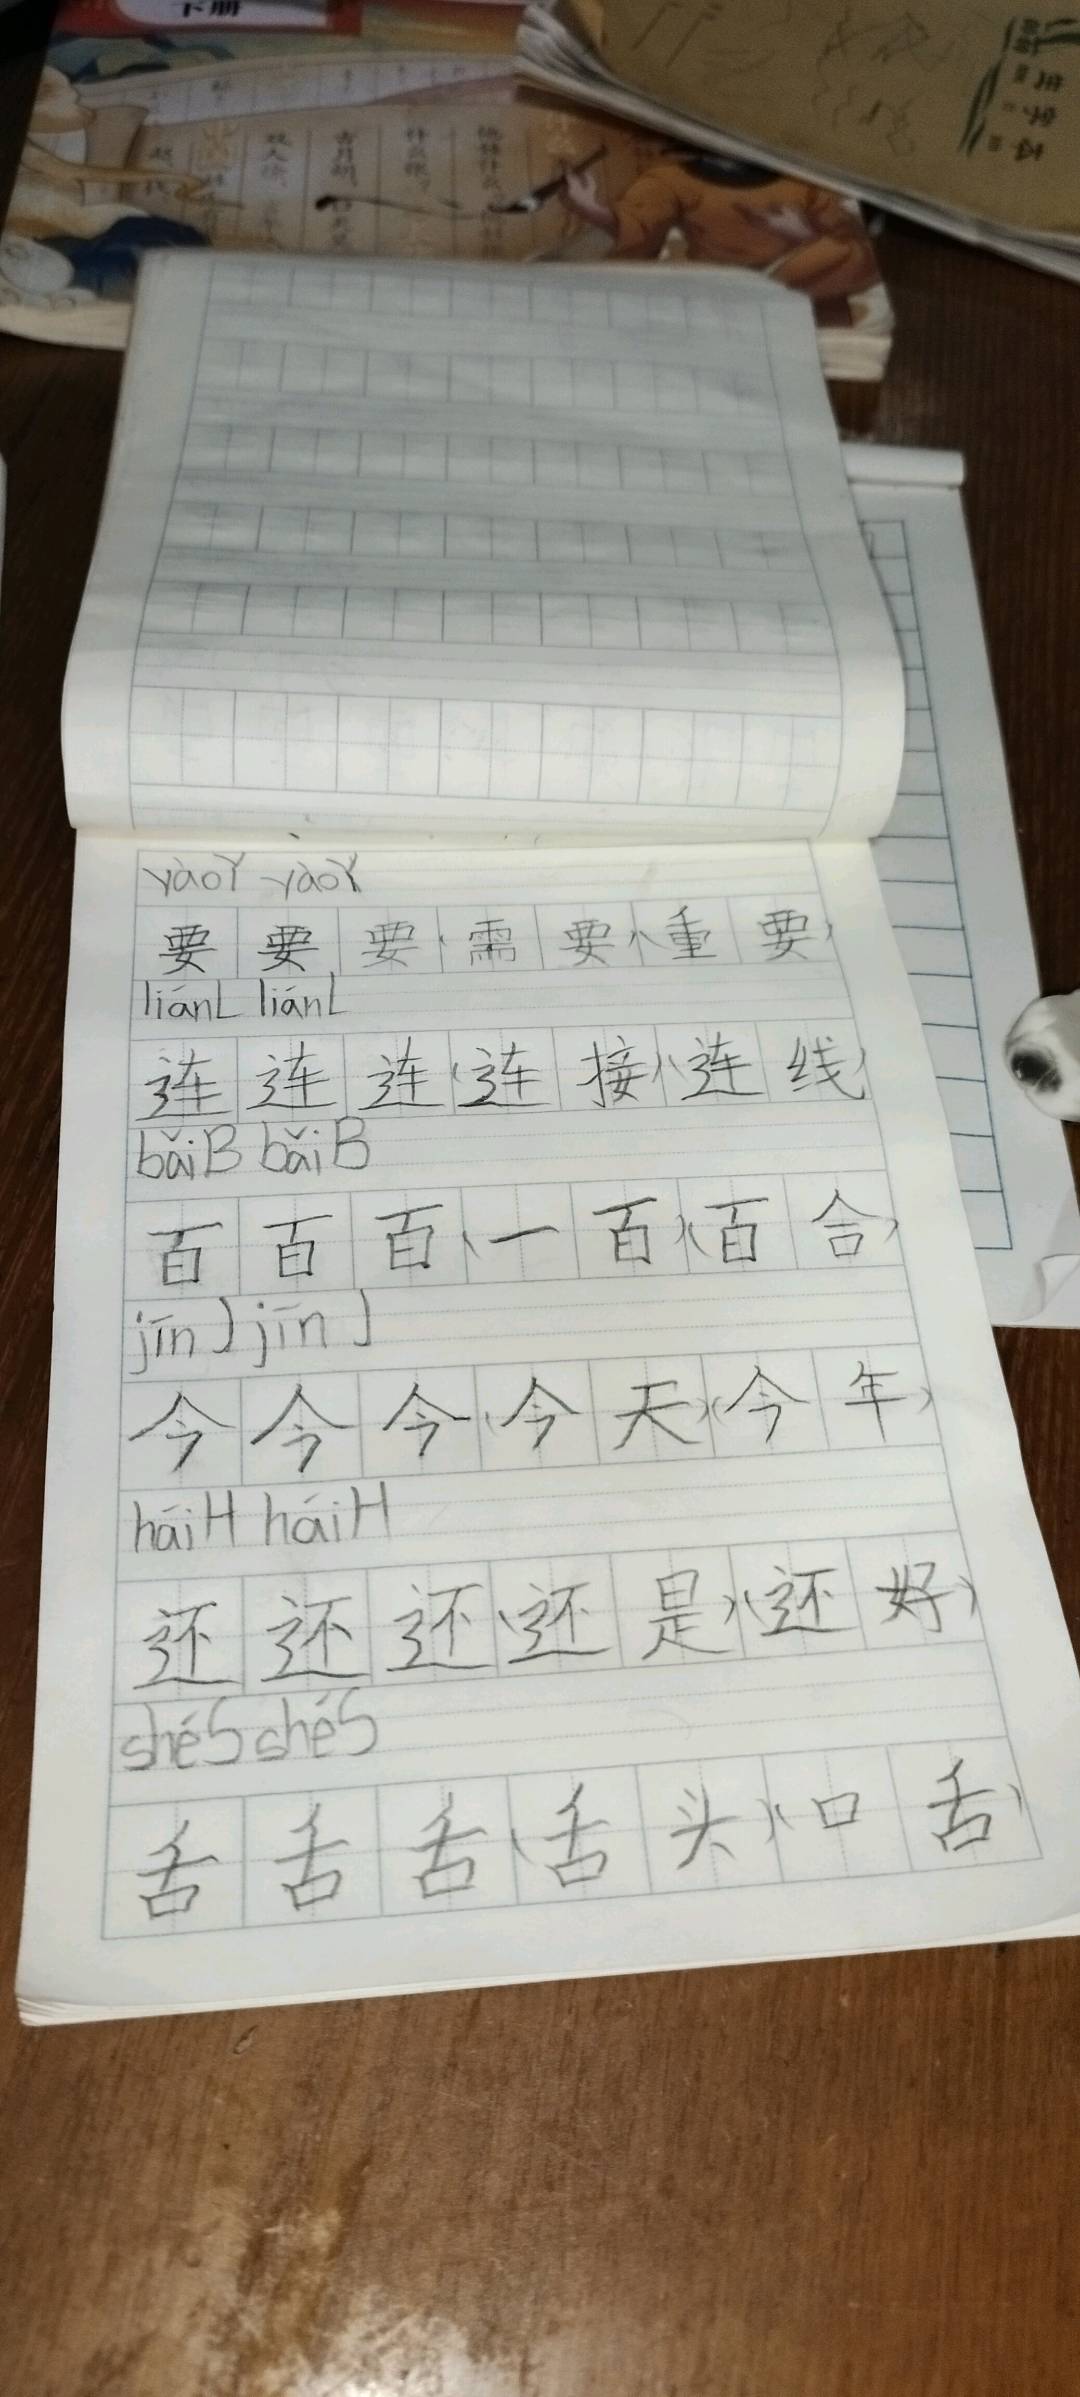 下册
yàoY yàoY
要要要(需要)(重要)
liánL liánL
连连连(连接)(连线)
bǎiB bǎiB
百百百(一百)(百合)
jīnJ jīnJ
今今今(今天)(今年)
háiH háiH
还还还(还是)(还好)
shéS shéS
舌舌舌(舌头)(口舌)